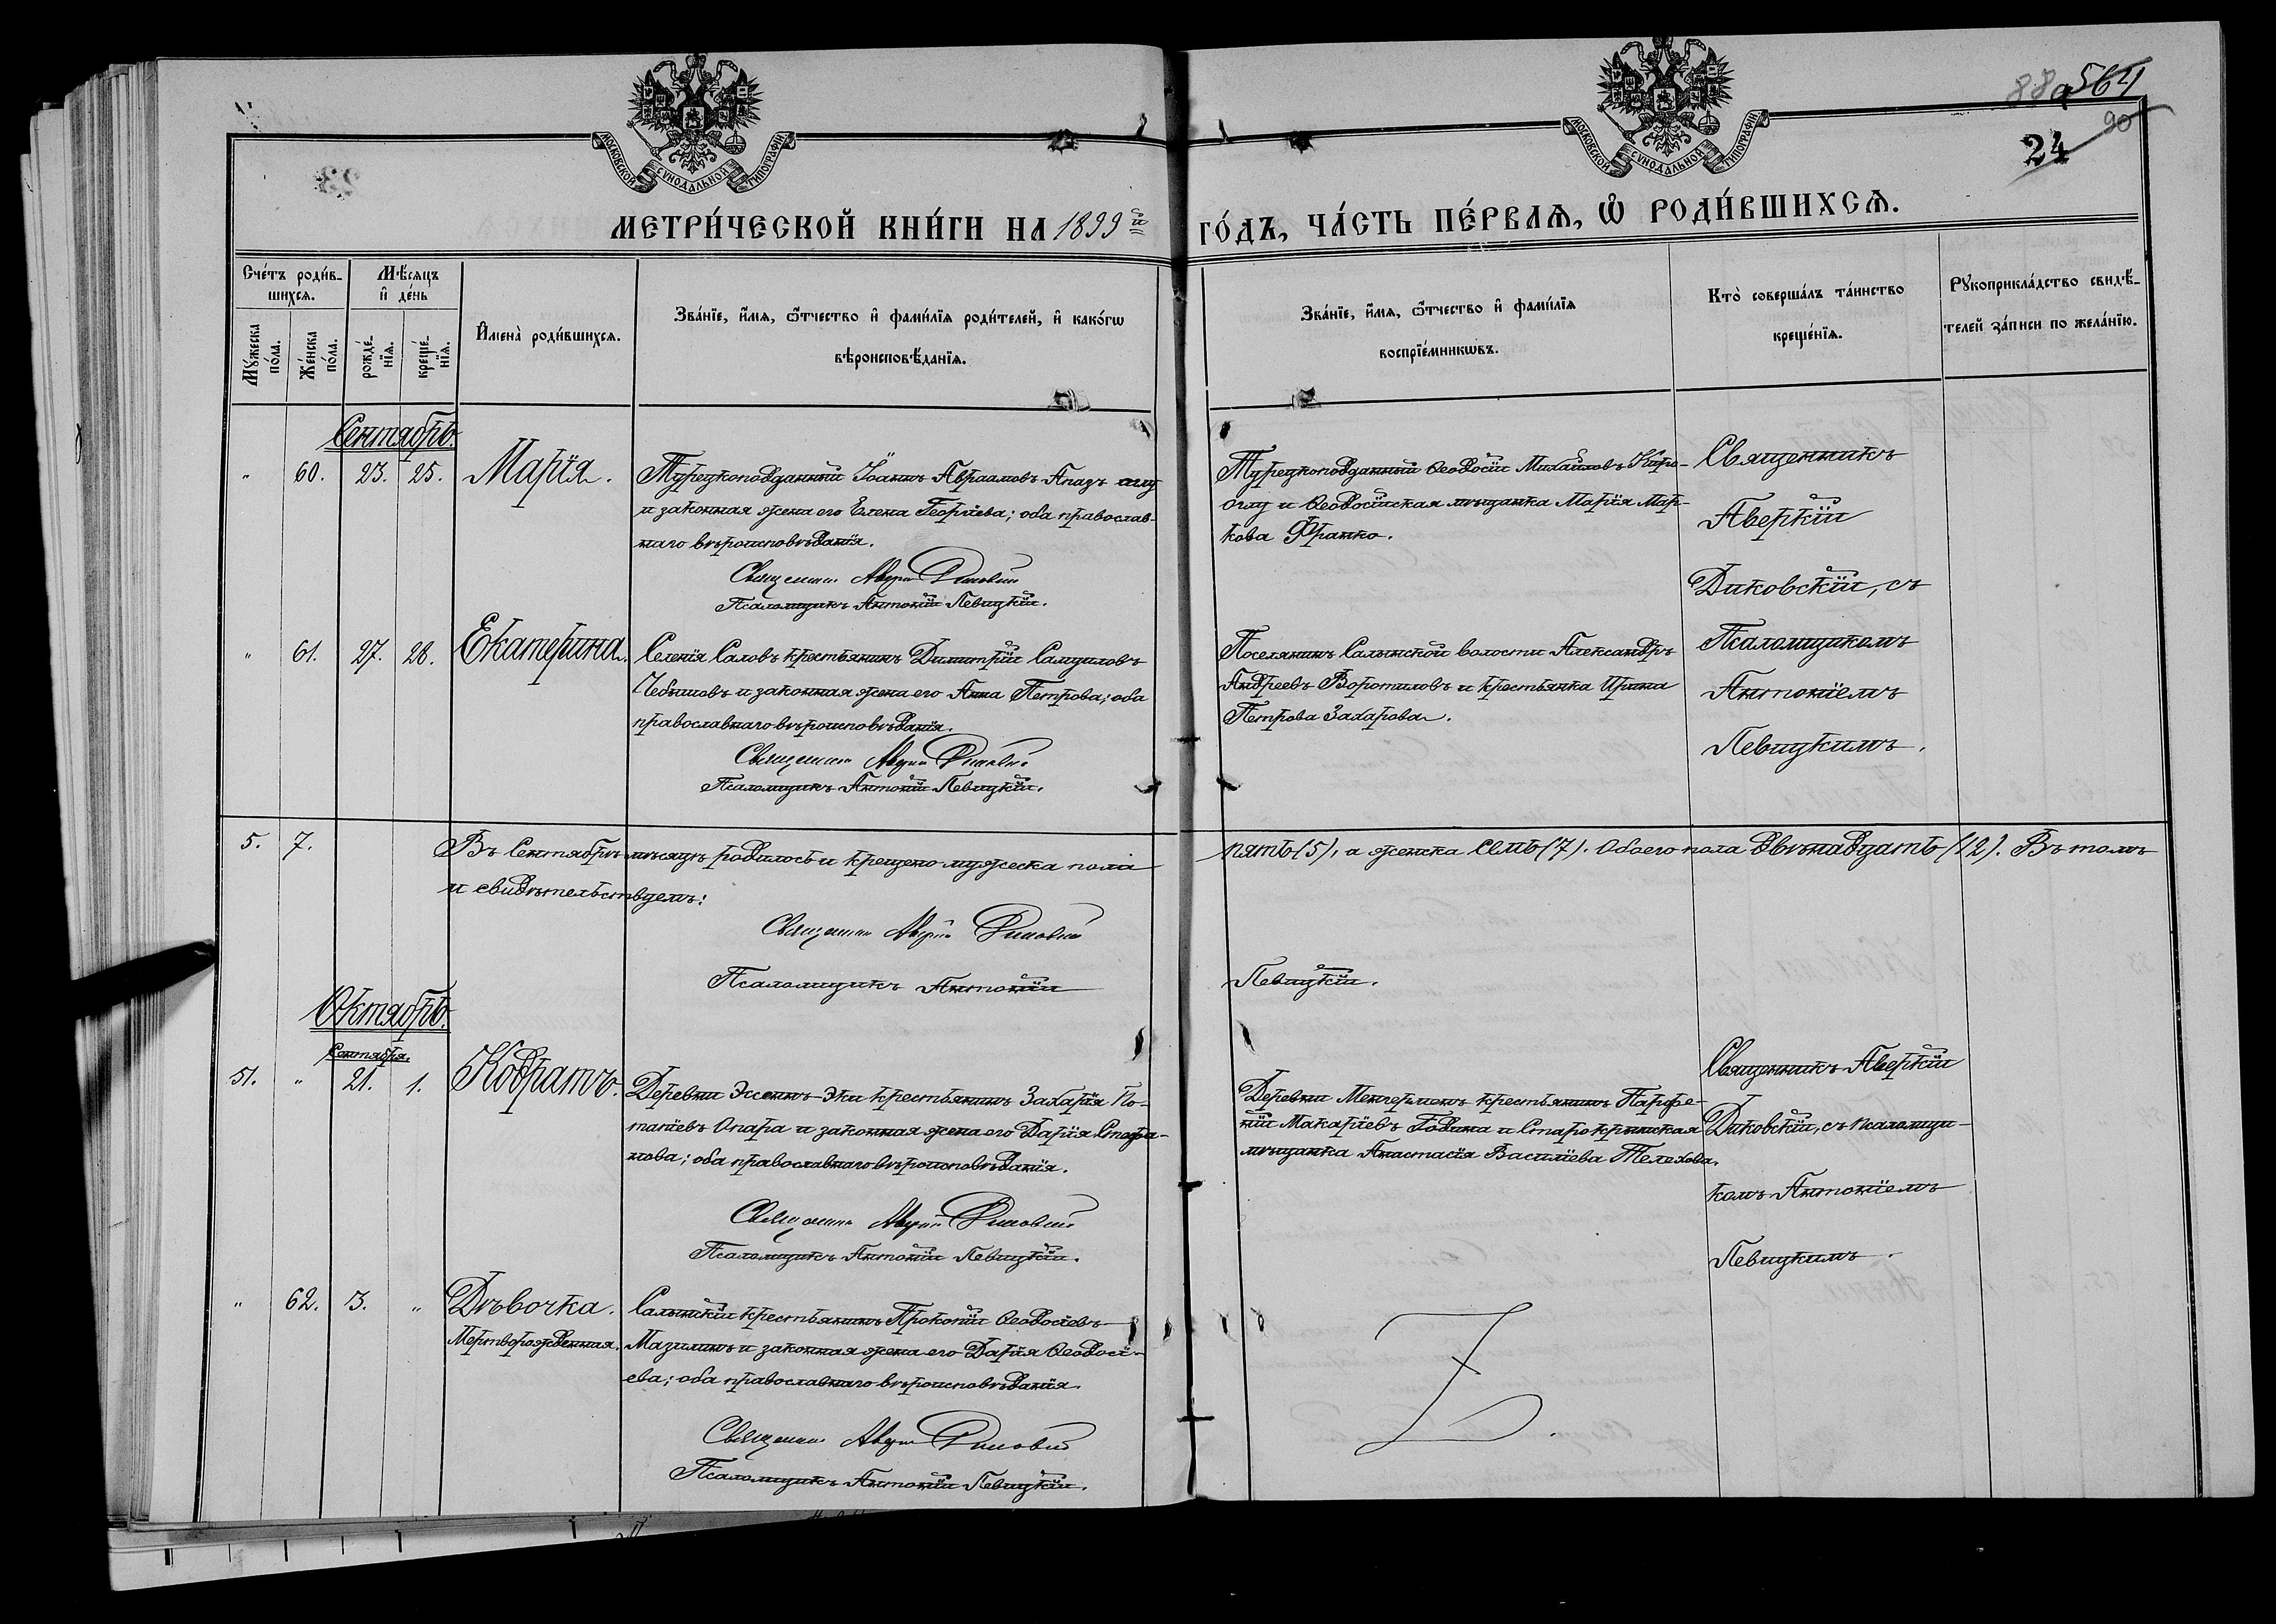 МОСКОВСКОЙ СѴНОДАЛЬНОЙ ТИПОГРАФІИ
МОСКОВСКОЙ СѴНОДАЛЬНОЙ ТИПОГРАФІИ
88а 564
90
24
МЕТРИ́ЧЕСКОЙ КНИ́ГИ НА 1899й ГО́ДЪ, ЧА́СТЬ ПЕ́РВАѦ, Ѡ҆ РОДИ́ВШИХСѦ.
Сче́тъ роди́в-
шихсѧ.
Мѣ́сѧцъ
и҆ де́нь
Мꙋжеска
по́ла.
Же́нска
по́ла.
рожде́-
нїѧ.
креще́-
нїѧ.
И҆мена̀ роди́вшихсѧ.
Зва́нїе, и҆́мѧ, ѻ҆́тчество и҆ фами́лїѧ роди́телей, и҆ како́гѡ
вѣроисповѣ́данїѧ.
Зва́нїе, и҆́мѧ, ѻ҆́тчество и҆ фами́лїѧ
воспрїе́мникѡвъ.
Кто̀ соверша́лъ та́инство
креще́нїѧ.
Рꙋкоприкла́дство свидѣ́-
телей за́писи по жела́нїю.
Сентябрь.
" 60. 23. 25. Марія.
Турецкоподданный Іоаннъ Авраамовъ Апазъ оглу
и законная жена его Елена Георгіева; оба православ-
наго вѣроисповѣданія.
Священникъ Аверкій Диковскій
Псаломщикъ Антоній Левицкій.
Турецкоподданный Ѳеодосій Михайловъ Киро-
оглу и Ѳеодосійская мѣщанка Марія Мар-
кова Франко.
Священникъ
Аверкій
Диковскій, съ
Псаломщикомъ
Антоніемъ
Левицкимъ.
" 61. 27. 28. Екатерина.
Селенія Саловъ крестьянинъ Димитрій Самуиловъ
Чебышовъ и законная жена его Анна Петрова; оба
православнаго вѣроисповѣданія.
Священникъ Аверкій Диковскій
Псаломщикъ Антоній Левицкій.
Поселянинъ Салынской волости Александръ
Андреевъ Воротиловъ и крестьянка Ирина
Петрова Захарова.
5. 7.
Въ Сентябрѣ мѣсяцѣ родилось и крещено мужеска пола пять (5), а женска семь (7). Обоего пола двѣнадцать (12). Въ томъ
и свидѣтельствуемъ:
Священникъ Аверкій Диковскій
Псаломщикъ Антоній Левицкій.
Октябрь.
Сентября.
51. " 21. 1. Кодратъ.
Деревни Эссенъ-Эки крестьянинъ Захарія По-
тапіевъ Опара и законная жена его Дарія Стефа-
нова; оба православнаго вѣроисповѣданія.
Священникъ Аверкій Диковскій
Псаломщикъ Антоній Левицкій.
Деревни Менгерменъ крестьянинъ Парфе-
ній Макаріевъ Година и Старокрымская
мѣщанка Анастасія Василіева Телехова.
Священникъ Аверкій
Диковскій, съ псаломщи-
комъ Антоніемъ
Левицкимъ.
" 62. 3. " Дѣвочка.
Мертворожденная.
Салынскій крестьянинъ Прокопій Ѳеодосіевъ
Мазилинъ и законная жена его Дарія Ѳеодосі-
ева; оба православнаго вѣроисповѣданія.
Священникъ Аверкій Диковскій
Псаломщикъ Антоній Левицкій.